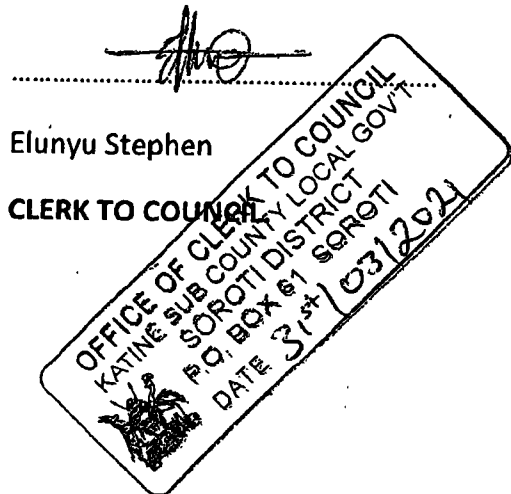 Elunyu Stephen
CLERK TO COUNCIL
OFFICE OF CLERK TO COUNCIL
KATINE SUB COUNTY LOCAL GOV'T
SOROTI DISTRICT
P.O. BOX 61 SOROTI
DATE 31st/03/2021